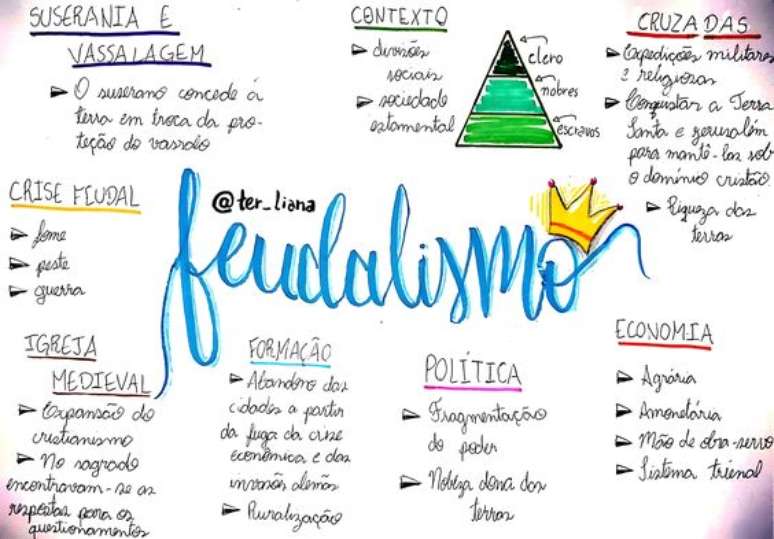 SUSERANIA E
VASSALAGEM
O suserano concede a
terra em troca da pro-
teção do vassalo
CONTEXTO
divisões
sociais
sociedade
estamental
clero
nobres
escravos
CRUZADAS
Expedições militares
e religiosas
Conquistar a Terra
Santa e Jerusalém
para mantê-las sob
o domínio cristão.
Riqueza das
terras
CRISE FEUDAL
fome
peste
guerra
@ter_liana
feudalismo
IGREJA
MEDIEVAL
Expansão do
cristianismo
No sagrado
encontravam-se as
respostas para os
questionamentos
FORMAÇÃO
Abandono das
cidades a partir
da fuga da crise
econômica e das
invasões alemãs
Ruralização
POLÍTICA
Fragmentação
do poder
Nobreza dona das
terras
ECONOMIA
Agrária
Amonetária
Mão de obra-servo
Sistema trienal